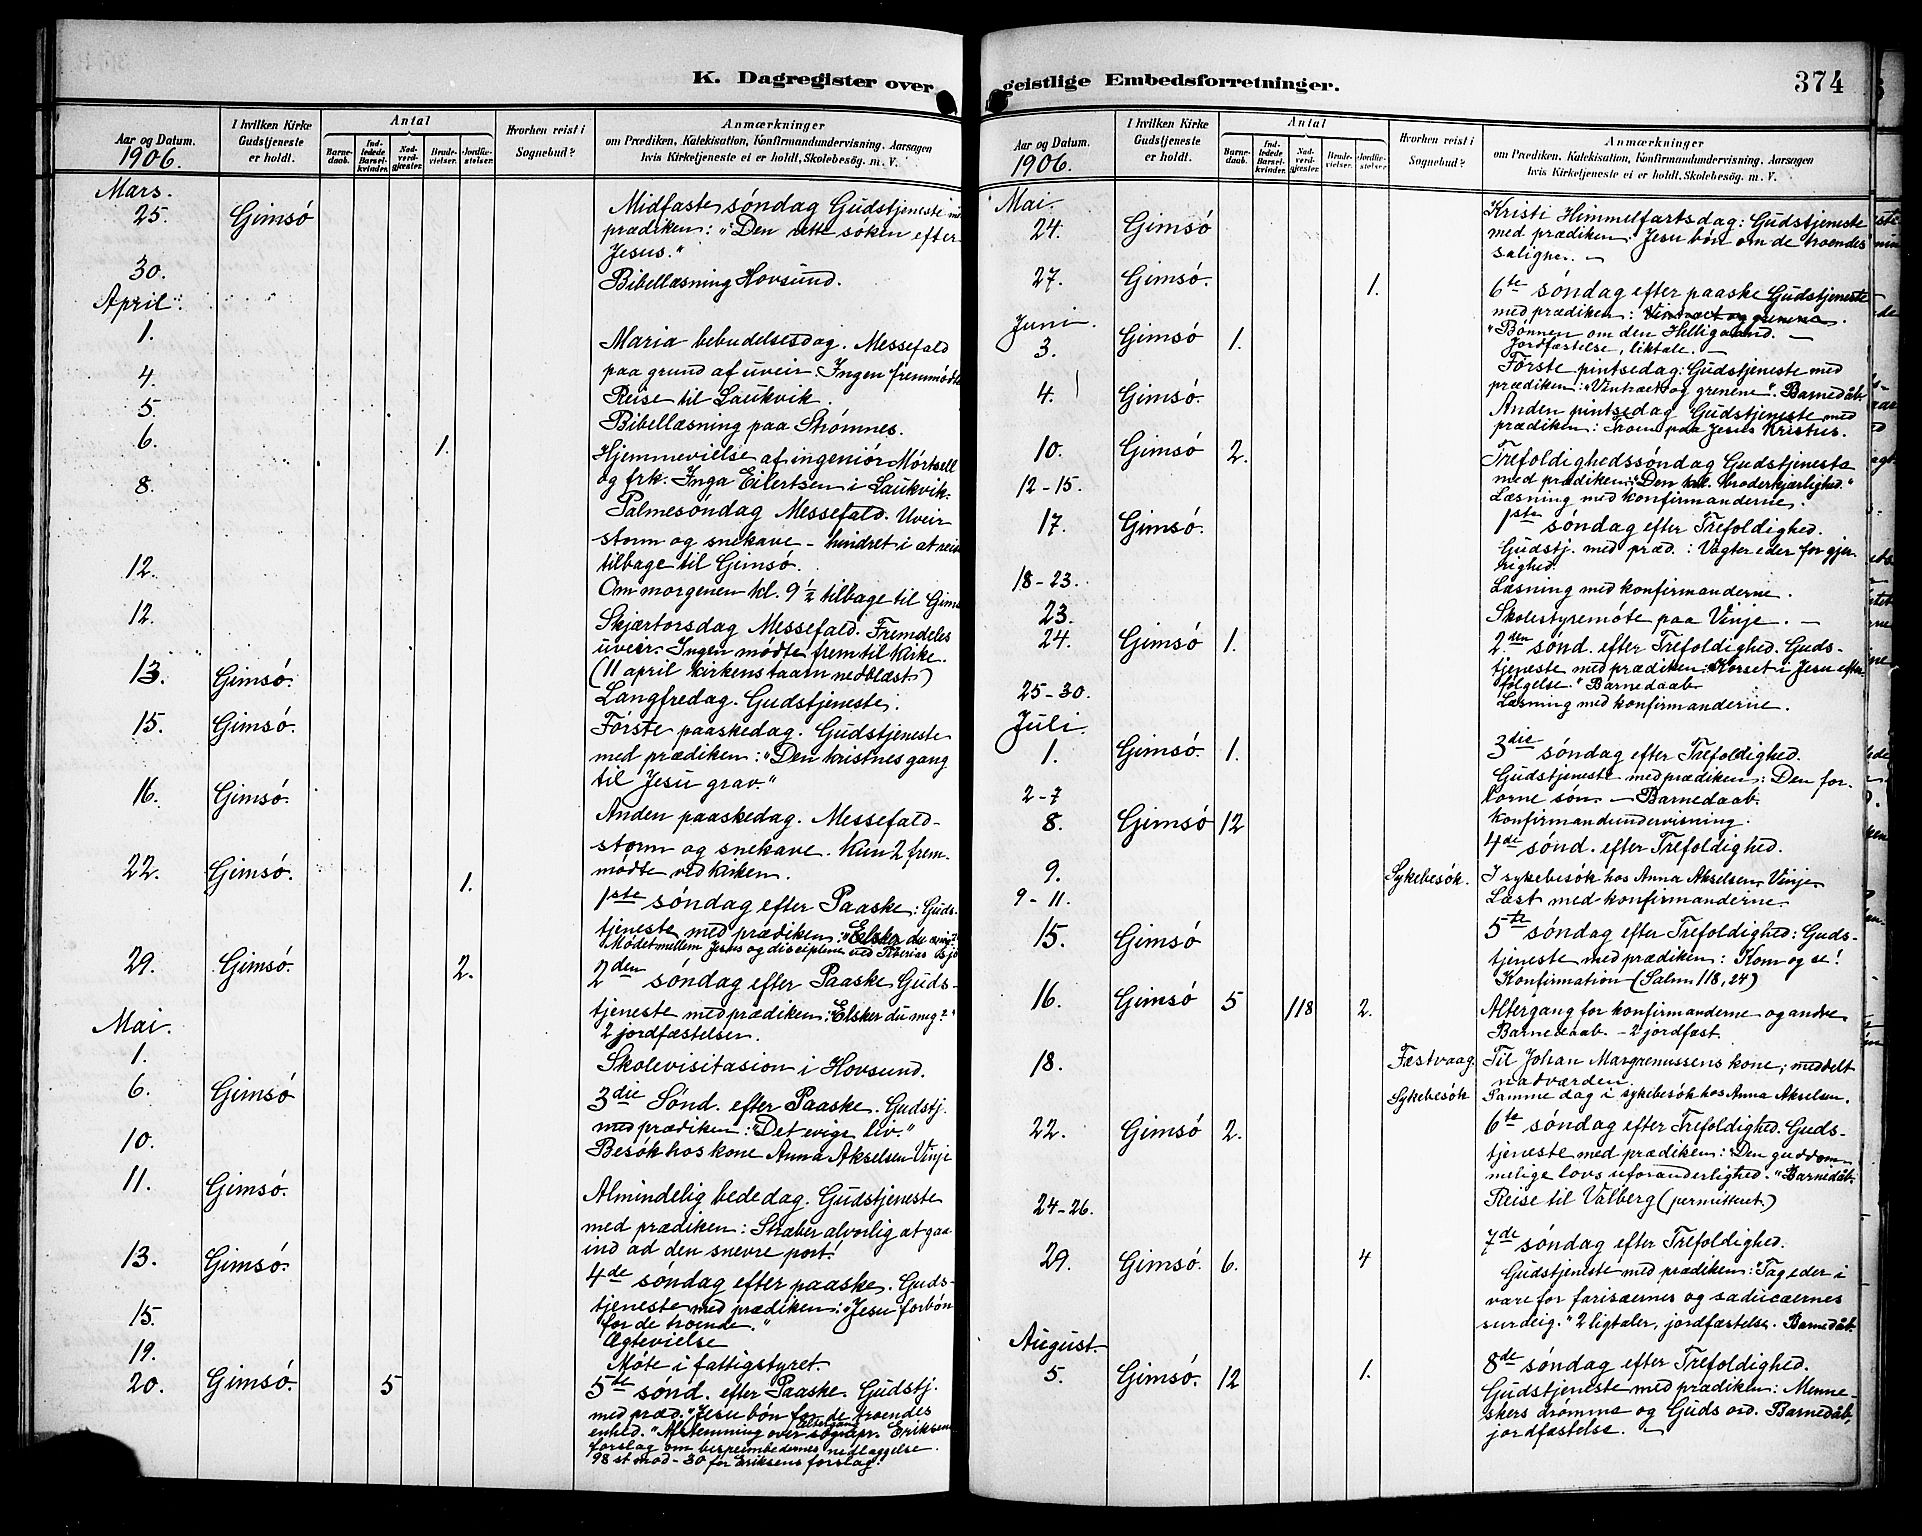 K. Dagregister over
Aar og Datum.
1906.
I hvilken Kirke Gudstjeneste er holdt.
Antal
Barnedaab.
Indledede Barselkvinder.
Nadverdgjæster.
Brudevielser.
Jordfæstelser.
Hvorhen reist i Sognebud?
Anmærkninger
om Prædiken, Katekisation, Konfirmandundervisning, Aarsagen
hvis Kirketjeneste ei er holdt, Skolebesøg. m. V.
Mars.
25. Gimsö Midfaste söndag Gudstjeneste
prædiken: "Den rette söken efter
Jesus."
30. Bibellæsning Hovsund.
April.
1. Maria bebudelsesdag. Messefald
paa grund af uveir. Ingen fremmödte
4. Reise til Laukvik.
5. Bibellæsning paa Strömnes.
6. 1. Hjemmevielse af ingeniör Mörtsell
og frk. Inga Eilertsen i Laukvik.
8. Palmesöndag Messefald. Uveir
storm og snekave – hindret i at reise
tilbage til Gimsö.
12. Om morgenen kl. 9 1/2 tilbage til Gims
12. Skjærtorsdag Messefald. Fremdeles
uveir. Ingen mödte frem til kirke.
(11 april kirkenstaarn nedblæst)
13. Gimsö. Langfredag. Gudstjeneste.
15. Gimsö. Förste paaskedag. Gudstjeneste
med prædiken: "Den kristnes gang
til Jesu grav."
16. Gimsö. Anden paaskedag. Messefald –
storm og snekave. Kun 2 frem-
mödte ved kirken.
22. Gimsö. 1. 1ste söndag efter Paaske: Guds-
tjeneste med prædiken: "Elsker du mig?
Mödet mellem Jesus og disciplene ved Tiberias sjö
29. Gimsö. 2. 2den söndag efter Paaske Guds-
tjeneste med prædiken: "Elsker du meg?"
2 jordfæstelser.
Mai.
1. Skolevisitasion i Hovsund.
6. Gimsö 3die Sönd. efter Paaske. Gudstj.
med prædiken: "Det evige liv."
10. Besök hos kone Anna Akselsen Vinje
11. Gimsö. Almindelig bededag. Gudstjeneste
med prædiken: Stræber alvorlig at gaa
ind ad den snevre port!
13. Gimsö. 4de söndag efter paaske. Guds-
tjeneste med prædiken: "Jesu forbön
for de troende."
15. Ægtevielse
19. Möte i fattigstyret.
20. Gimsö. 5 5te sönd. efter Paaske. Gudstj.
med præd. "Jesu bön for de troendes
enhed." Altergang
Afstemning over sognepr. Eriksens
forslag om bispeembedernes nedlæggelse.
98 st mod – 30 for Eriksens forslag!
geistlige Embedsforretninger.
374
Aar og Datum.
1906.
I hvilken Kirke Gudstjeneste er holdt.
Antal
Barnedaab.
Indledede Barselkvinder.
Nadverdgjæster.
Brudevielser.
Jordfæstelser.
Hvorhen reist i Sognebud?
Anmærkninger
om Prædiken, Katekisation, Konfirmandundervisning, Aarsagen
hvis Kirketjeneste ei er holdt, Skolebesøg. m. V.
Mai.
24. Gimsö Kristi Himmelfartsdag: Gudstjeneste
med prædiken: Jesu bön om de troendes
salighe. –
27. Gimsö. 1. 6te söndag efter paaske Gudstjeneste
med prædiken: Vintræet og grenene.
"Bönnen om den Helligaand. –
Jordfæstelse, liktale. –
Juni.
3. Gimsö 1. Förste pintsedag: Gudstjeneste med
prædiken: "Vintræet og grenene". Barnedåb.
4. Gimsö. Anden pintsedag Gudstjeneste med
prædiken: Troen paa Jesus Kristus.
10. Gimsö 2. Trefoldighedssöndag Gudstjeneste
med prædiken: "Den broderkjærlighed."
12-15. Læsning med konfirmanderne.
17. Gimsö. 1ste söndag efter Trefoldighed.
Gudstj. med præd.: Vogter eder for gjer-
righed
18-23. Læsning med konfirmanderne.
23. Skolestyremöte paa Vinje. –
24. Gimsö 1. 2den sönd. efter Trefoldighed. Guds-
tjeneste med prædiken: Korset i Jesu efter-
fölgelse." Barnedaab
25-30. Læsning med konfirmanderne.
Juli.
1. Gimsö. 1. 3die söndag efter Trefoldighed.
Gudstjeneste med prædiken: Den for-
lorne sön. – Barnedaab.
2-7 Konfirmandundervisning.
8. Gimsö 12 4de sönd. efter Trefoldighed.
9. Sykebesök. I sykebesök hos Anna Akselsen, Vinje
9-11. Læst med konfirmanderne.
15. Gimsö 5te söndag efter Trefoldighed: Guds-
tjeneste med prædiken: Kom og se!
Konfirmation (Salm 118, 24)
16. Gimsö 5 118 2. Altergang for konfirmanderne og andre
Barnedaab – 2 jordfæst.
18. Festvaag. Til Johan Margrenussens kone; meddelt
nadværden.
Sykebesök Samme dag i sykebesök hos Anna Akselsen.
22. Gimsö 2. 6te söndag efter Trefoldighed. Guds-
tjeneste med prædiken: "Den guddom-
melige lovs uforanderlighed." Barnedåb.
24-26. Reise til Valberg (permitteret.)
29. Gimsö. 6. 4 7de söndag efter Trefoldighed.
Gudstjeneste med prædiken: "Tag eder i
vare for farisæernes og saducæernes
surdeig." 2 ligtaler, jordfæstelse. Barnedåb.
August.
5. Gimsö. 12 1. 8de söndag efter Trefoldighed.
Gudstjeneste med prædiken: Menne-
skers drömme og Guds ord. Barnedåb,
jordfæstelse. –